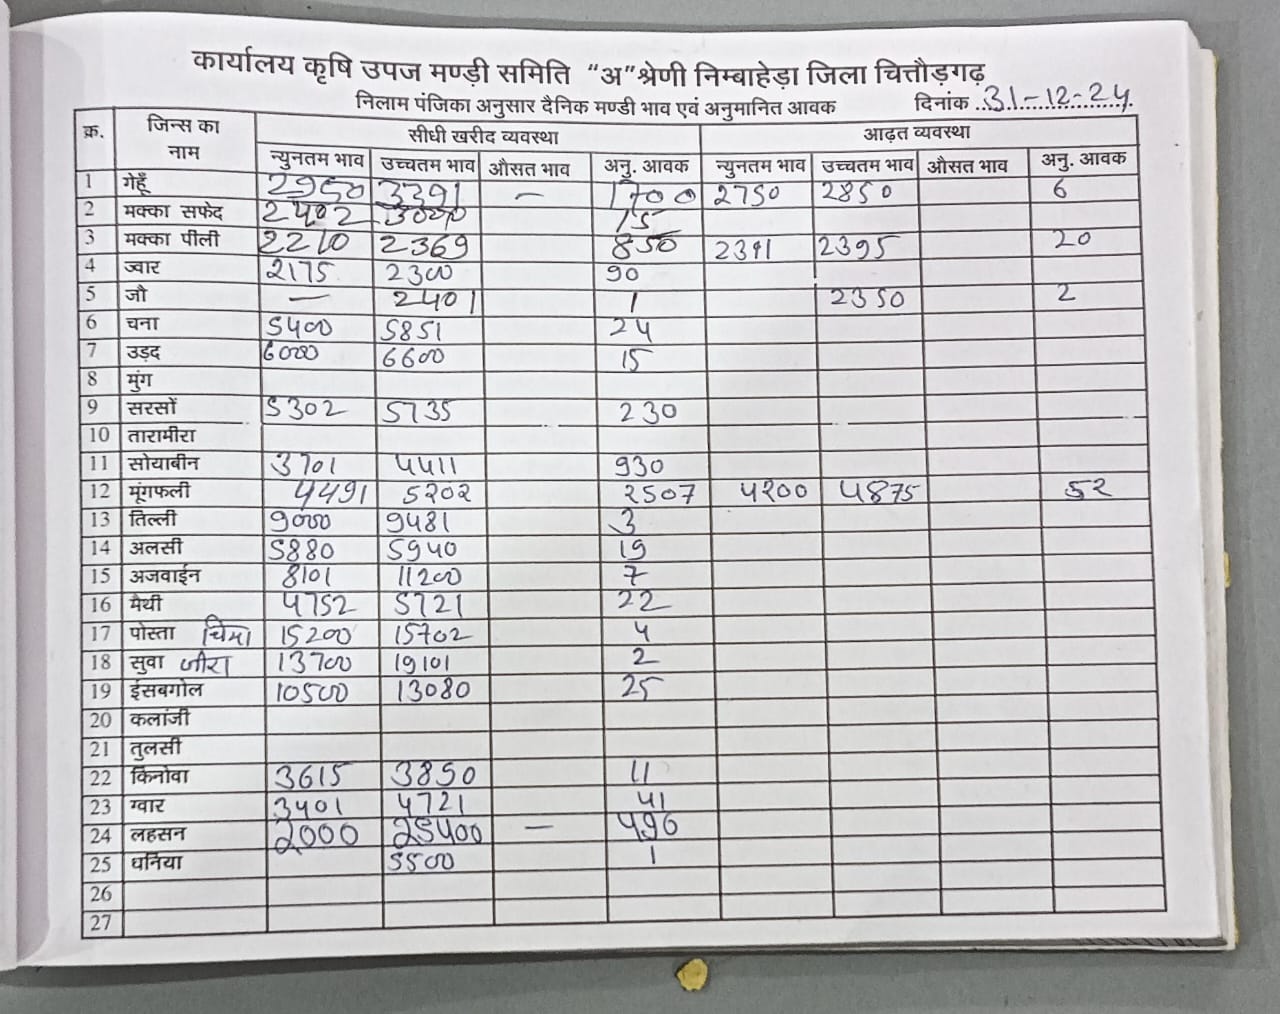 कार्यालय कृषि उपज मण्डी समिति "अ"श्रेणी निम्बाहेड़ा जिला चित्तौड़गढ़
निलाम पंजिका अनुसार दैनिक मण्डी भाव एवं अनुमानित आवक दिनांक 31-12-24
क्र. जिन्स का नाम सीधी खरीद व्यवस्था आढ़त व्यवस्था
न्युनतम भाव उच्चतम भाव औसत भाव अनु. आवक न्युनतम भाव उच्चतम भाव औसत भाव अनु. आवक
1 गेहूँ 2950 3391 – 1700 2750 2850 6
2 मक्का सफेद 2402 15
3 मक्का पीली 2210 2369 850 2391 2395 20
4 ज्वार 2175 2300 90
5 जौ — 2401 1 2350 2
6 चना 5400 5851 24
7 उड़द 6000 6600 15
8 मुंग
9 सरसों 5302 5735 230
10 तारामीरा
11 सोयाबीन 3701 4411 930
12 मूंगफली 4491 5202 2507 4200 4875 52
13 तिल्ली 9000 9481 3
14 अलसी 5880 5940 19
15 अजवाईन 8101 11200 7
16 मैथी 4752 5721 22
17 पोस्ता चिमा 15200 15702 4
18 सुवा जीरा 13700 19101 2
19 ईसबगोल 10500 13080 25
20 कलांजी
21 तुलसी
22 किनोवा 3615 3850 11
23 ग्वार 3401 4721 41
24 लहसन 2000 25400 – 496
25 धनिया 5500 1
26
27